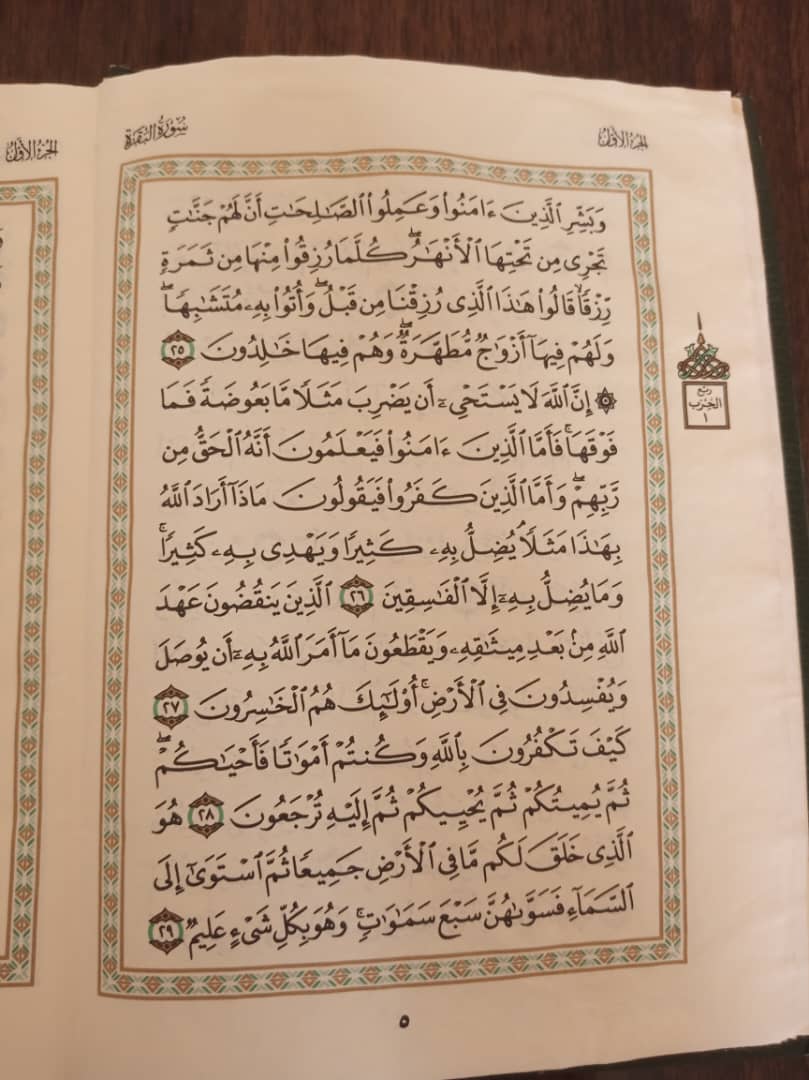 سُورَةُ البَقَرَةِ
الجُزءُ الأوَّلُ
وَبَشِّرِ ٱلَّذِينَ ءَامَنُوا۟ وَعَمِلُوا۟ ٱلصَّـٰلِحَـٰتِ أَنَّ لَهُمْ جَنَّـٰتٍ
تَجْرِى مِن تَحْتِهَا ٱلْأَنْهَـٰرُ ۖ كُلَّمَا رُزِقُوا۟ مِنْهَا مِن ثَمَرَةٍ
رِّزْقًا ۙ قَالُوا۟ هَـٰذَا ٱلَّذِى رُزِقْنَا مِن قَبْلُ ۖ وَأُتُوا۟ بِهِۦ مُتَشَـٰبِهًا ۖ
وَلَهُمْ فِيهَآ أَزْوَٰجٌ مُّطَهَّرَةٌ ۖ وَهُمْ فِيهَا خَـٰلِدُونَ ٢٥
۞ إِنَّ ٱللَّهَ لَا يَسْتَحْىِۦٓ أَن يَضْرِبَ مَثَلًا مَّا بَعُوضَةً فَمَا
فَوْقَهَا ۚ فَأَمَّا ٱلَّذِينَ ءَامَنُوا۟ فَيَعْلَمُونَ أَنَّهُ ٱلْحَقُّ مِن
رَّبِّهِمْ ۖ وَأَمَّا ٱلَّذِينَ كَفَرُوا۟ فَيَقُولُونَ مَاذَآ أَرَادَ ٱللَّهُ
بِهَـٰذَا مَثَلًا ۘ يُضِلُّ بِهِۦ كَثِيرًا وَيَهْدِى بِهِۦ كَثِيرًا ۚ
وَمَا يُضِلُّ بِهِۦٓ إِلَّا ٱلْفَـٰسِقِينَ ٢٦ ٱلَّذِينَ يَنقُضُونَ عَهْدَ
ٱللَّهِ مِنۢ بَعْدِ مِيثَـٰقِهِۦ وَيَقْطَعُونَ مَآ أَمَرَ ٱللَّهُ بِهِۦٓ أَن يُوصَلَ
وَيُفْسِدُونَ فِى ٱلْأَرْضِ ۚ أُو۟لَـٰٓئِكَ هُمُ ٱلْخَـٰسِرُونَ ٢٧
كَيْفَ تَكْفُرُونَ بِٱللَّهِ وَكُنتُمْ أَمْوَٰتًا فَأَحْيَـٰكُمْ ۖ
ثُمَّ يُمِيتُكُمْ ثُمَّ يُحْيِيكُمْ ثُمَّ إِلَيْهِ تُرْجَعُونَ ٢٨ هُوَ
ٱلَّذِى خَلَقَ لَكُم مَّا فِى ٱلْأَرْضِ جَمِيعًا ثُمَّ ٱسْتَوَىٰٓ إِلَى
ٱلسَّمَآءِ فَسَوَّىٰهُنَّ سَبْعَ سَمَـٰوَٰتٍ ۚ وَهُوَ بِكُلِّ شَىْءٍ عَلِيمٌ ٢٩
ربع
الحزب
١
٥
الجُزءُ الأوَّلُ